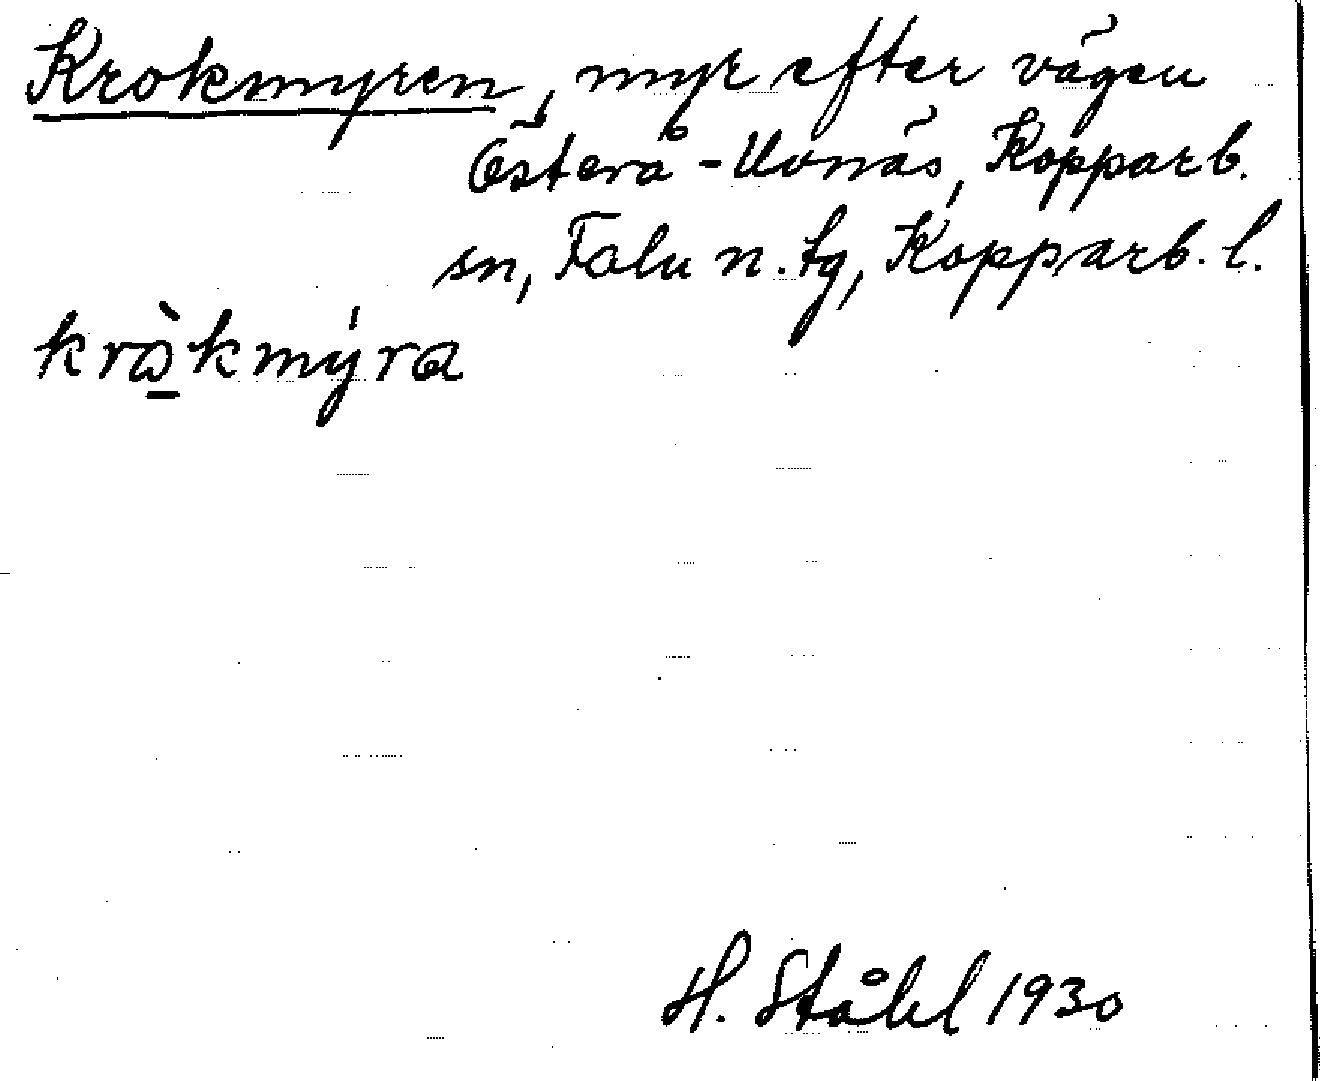 Krokmyren, myr efter vägen
Österå - Uvnäs, Kopparb.
sn, Falu n. tg, Kopparb. l.
krὼ̲kmýra
H. Ståhl 1930